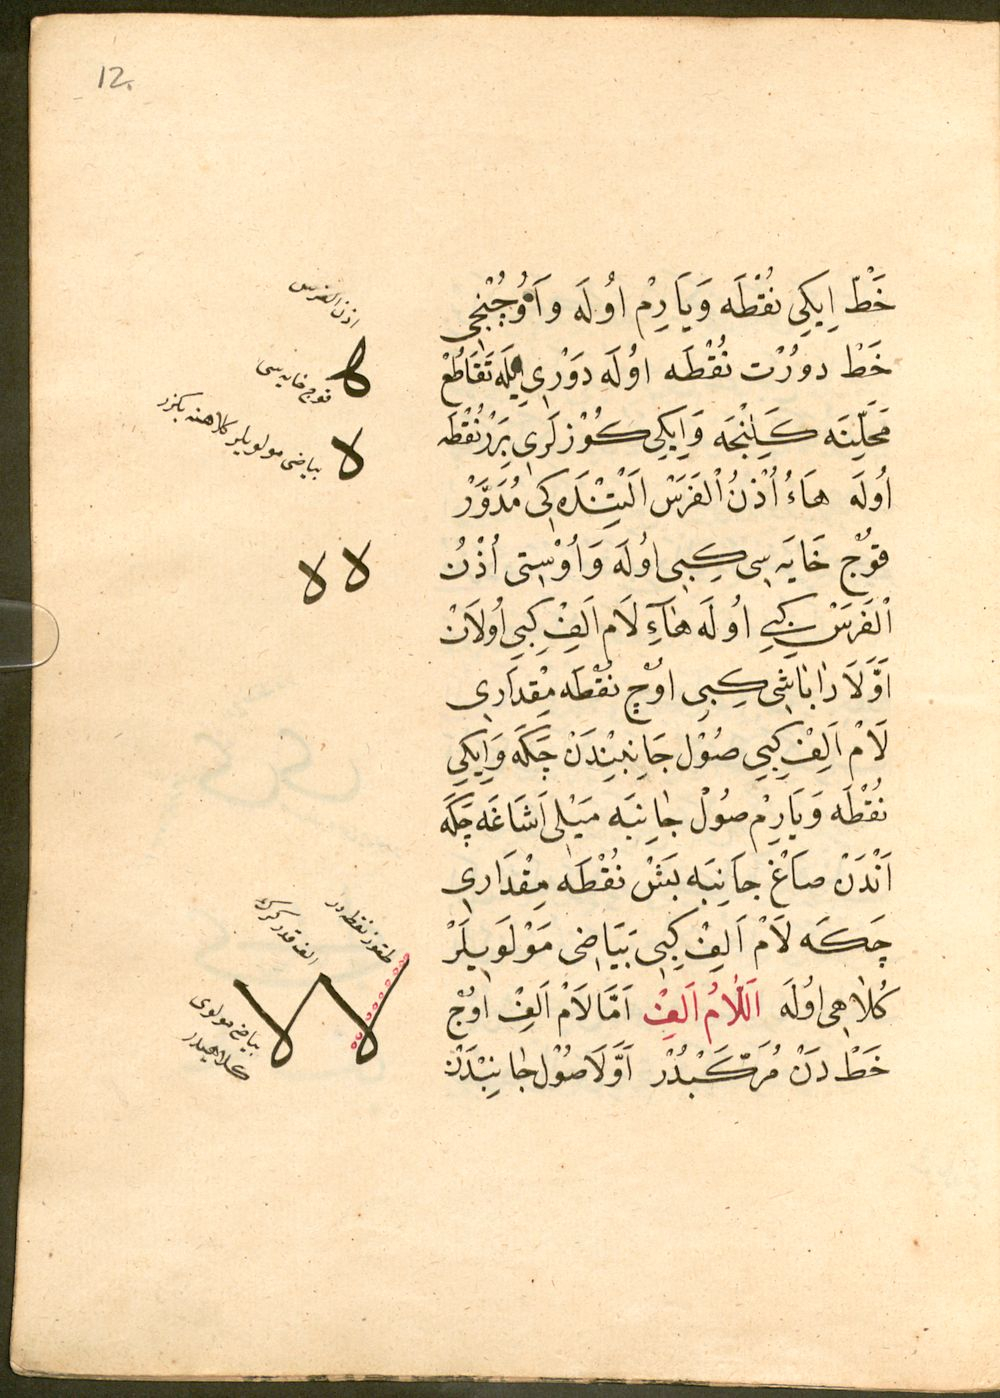 12.
خَطّ اِيكِي نُقْطَه وَيَارِمْ اوُلَه وَاُوچُنْجِى
خَطْ دورْت نُقْطَه اوُلَه دَوْرِي ايلَه تَقَاطُعْ
مَحَلِّينَه كَلِنْجَه وَاِيكِى كُوْزلَرِى بِرَرْ نُقْطَه
اُولَه هَاءُ اُذْنُ الْفَرَسْ اَلْتِنْدَه كِى مُدَوَّرْ
قوُچْ خَايَه سِى كِبِى اوُلَه وَاُوسْتِى اُذْنُ
الْفَرَسْ كِبِي اوُلَه هَاءِ لَامْ اَلِفْ كِبِى اُولَانْ
اَوَّلَا رَا بَاشِى كِبِى اوُچْ نُقْطَه مِقْدَارِى
لَامْ اَلِفْ كِبِي صُوْل جَانِبِنْدَنْ چَكَه وَاِيكِي
نُقْطَه وَيَارِمْ صُولْ جَانِبَه مَيْلِى اَشَاغَه چَكَه
اَنْدَنْ صَاغْ جَانِبَه بَشْ نُقْطَه مِقْدَارِى
چَكَه لَامْ اَلِفْ كِبِى بَيَاضِى مَوْلَوِيلَرْ
كُلَاهِى اوُلَه اَللَّامُ اَلِفْ اَمَّا لَامْ اَلِفْ اوُچْ
خَطْ دَنْ مُرَكَّبْدُرْ اَوَّلَا صُوْل جَانِبْدَنْ
اذن الفرس
قوچ خايه سى
بياضى مولويلر كلاهنه بكزر
طقوز نقطه در
الف قدر كرك
بياضى مولوى
كلاهيدر